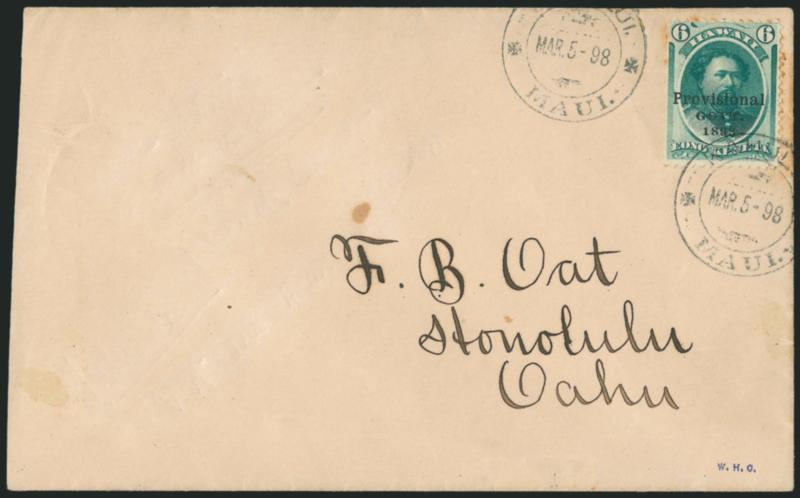 MAR. 5 - 98
MAUI.
6 HAWAII 6
Provisional
GOVT.
1893
MAR. 5 - 98
MAUI.
F. B. Oat
Honolulu
Oahu
W. H. C.